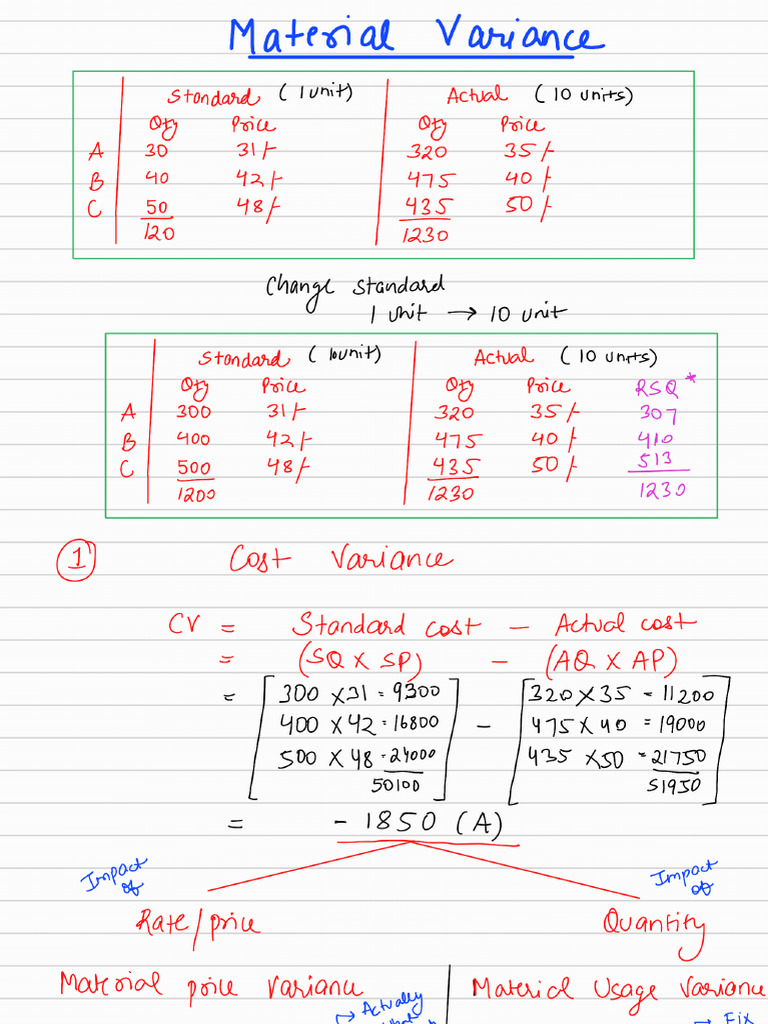 Material Variance
Standard (1 unit) Actual (10 units)
Qty Price Qty Price
A 30 31/- 320 35/-
B 40 42/- 475 40/-
C 50 48/- 435 50/-
120 1230
Change Standard
1 unit → 10 unit
Standard (10unit) Actual (10 units)
Qty Price Qty Price RSQ *
A 300 31/- 320 35/- 307
B 400 42/- 475 40/- 410
C 500 48/- 435 50/- 513
1200 1230 1230
1 Cost Variance
CV = Standard cost - Actual cost
= (SQ X SP) - (AQ X AP)
= [300 X 31 = 9300 320 X 35 = 11200
400 X 42 = 16800 - 475 X 40 = 19000
500 X 48 = 24000 435 X 50 = 21750
50100] 51950]
= - 1850 (A)
Impact of Impact of
Rate/price Quantity
Material price variance Material Usage Variance
→ Actually → Fix